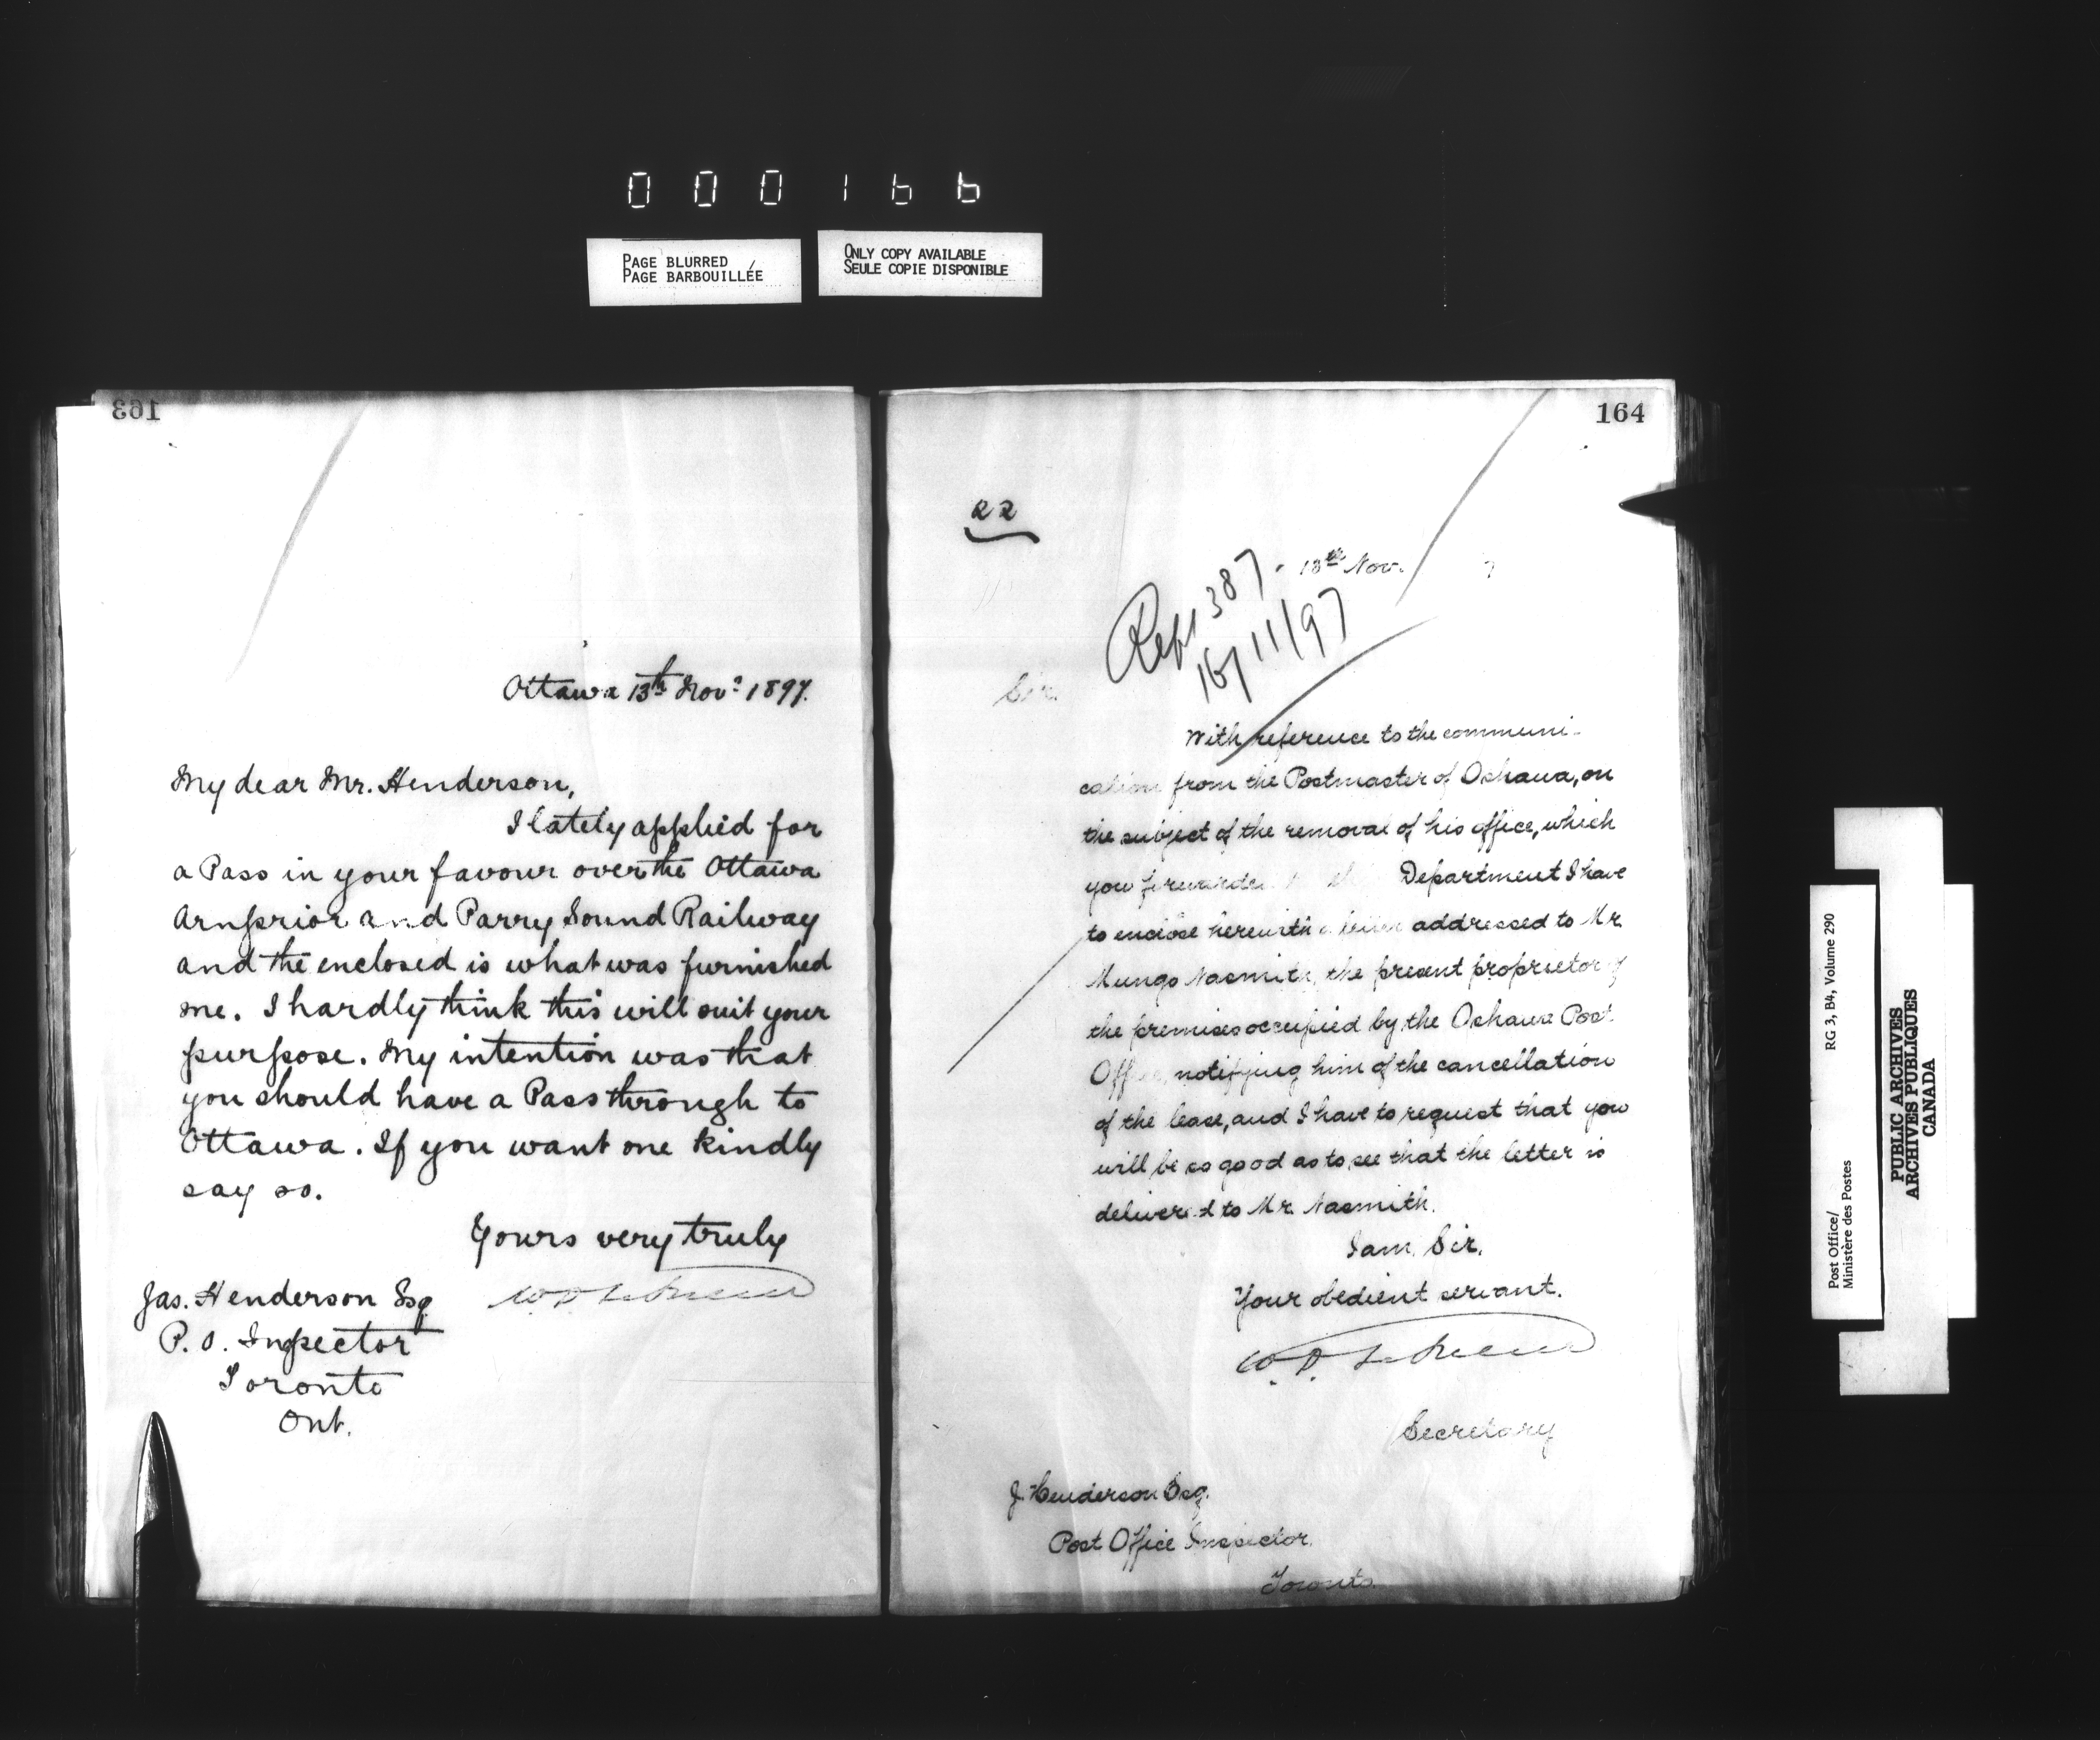 0 0 0 1 6 6
PAGE BLURRED
PAGE BARBOUILLÉE
ONLY COPY AVAILABLE
SEULE COPIE DISPONIBLE
163
Ottawa 13th Nov. 1897.
My dear Mr. Henderson,
I lately applied for
a Pass in your favour over the Ottawa
Arnprior and Parry Sound Railway
and the enclosed is what was furnished
me. I hardly think this will suit your
purpose. My intention was that
you should have a Pass through to
Ottawa. If you want one kindly
say so.
Yours very truly
Jas. Henderson Esq
P. O. Inspector
Toronto
Ont.
164
22
13th Nov. 7
387
16/11/97
Sir.
With reference to the communi-
cation from the Postmaster of Oshawa, on
the subject of the removal of his office, which
you forwarded Department I have
to enclose herewith a letter addressed to Mr.
Mungo Nasmith, the present proprietor of
the premises occupied by the Oshawa Post
Office, notifying him of the cancellation
of the lease, and I have to request that you
will be so good as to see that the letter is
delivered to Mr. Nasmith.
I am, Sir,
Your obedient servant.
Secretary
J. Henderson Esq.
Post Office Inspector.
Toronto.
Post Office/
Ministère des Postes
RG 3, B4, Volume 290
PUBLIC ARCHIVES
ARCHIVES PUBLIQUES
CANADA